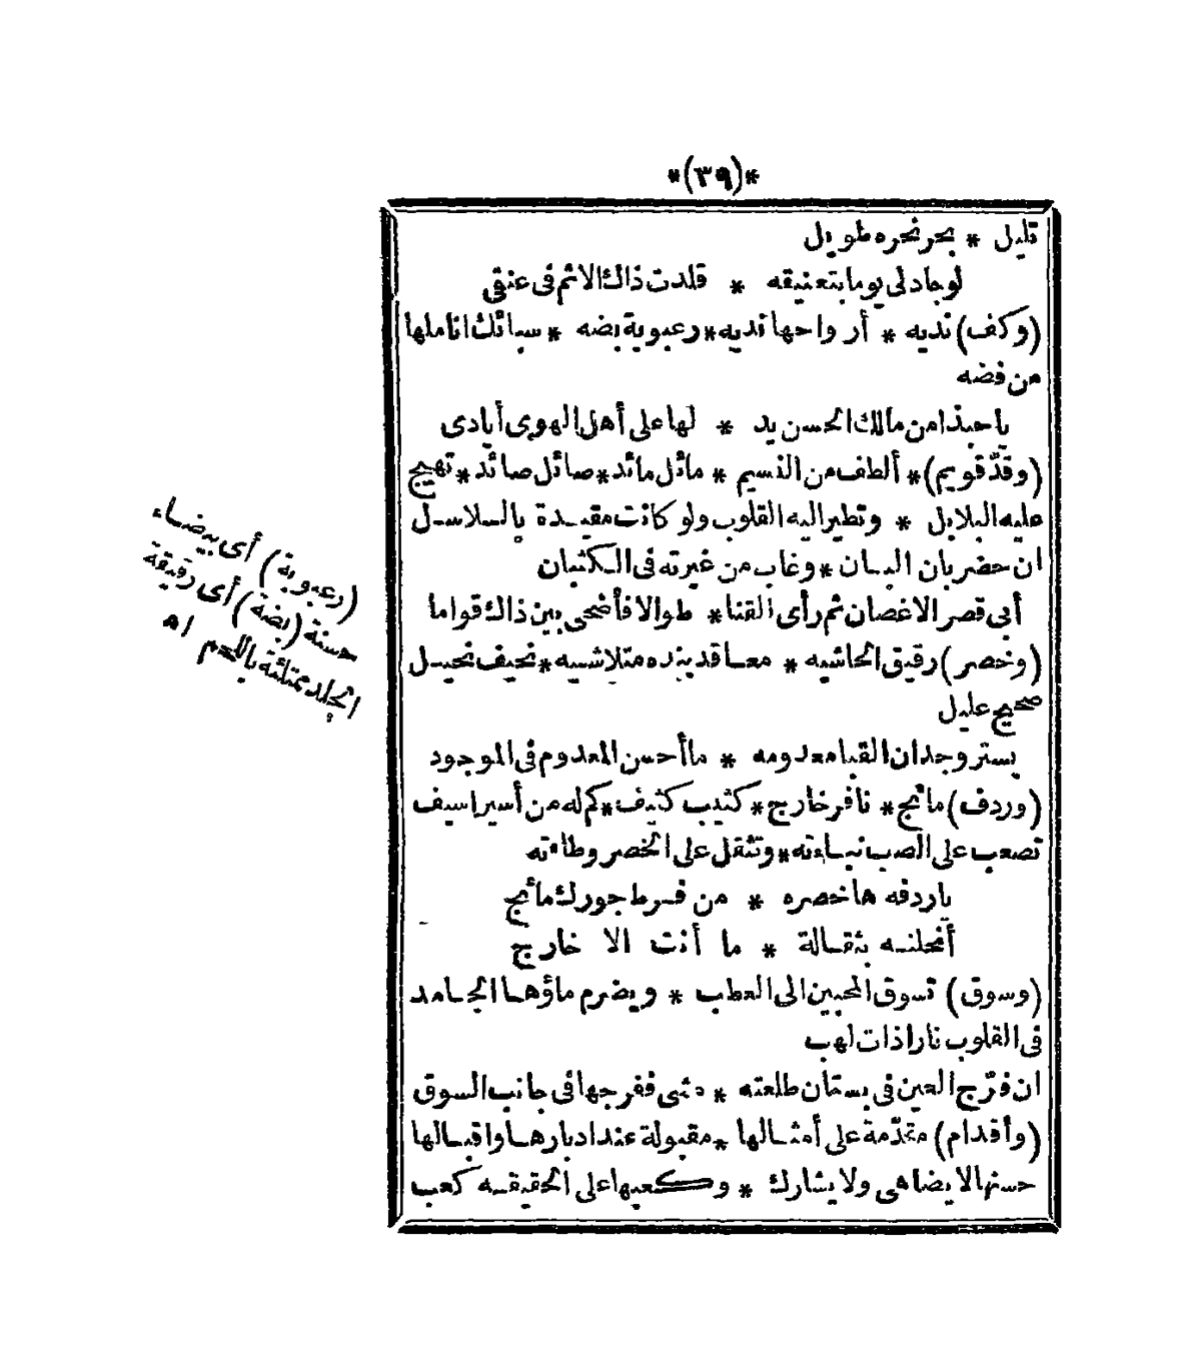 *(٣٩)*
قليل * بحر نحره طويل
لو جاد لى يوما بتعنيقه * قلدت ذاك الاثم فى عنقى
(وكف) نديه * أرواحها نديه * رعبوبة بضه * سبائك اناملها
من فضه
يا حبذا من مالك الحسن يد * لها على أهل الهوى أيادى
(وقدّ قويم) * ألطف من النسيم * مائل مائد * صائل صائد * تهيج
عليه البلابل * وتطير اليه القلوب ولو كانت مقيدة بالسلاسل
ان حضر بان البان * وغاب من غيرته فى الكثبان
أبى قصر الاغصان ثم رأى القنا * طوالا فأضحى بين ذاك قواما
(وخصر) رقيق الحاشيه * معاقد بنده متلاشيه * نحيف نحيل
صحيح عليل
يستر وجدان القبا معدومه * ما أحسن المعدوم فى الموجود
(وردف) مائج * نافر خارج * كثيب كثيف * كم له من أسير اسيف
تصعب على الصب نباءته * وتثقل على الخصر وطاءته
يا ردفه ها خصره * من فرط جورك مائج
أنحلنه بثقالة * ما أنت الا خارج
(وسوق) تسوق المحبين الى العطب * ويضرم ماؤها الجامد
فى القلوب نارا ذات لهب
ان فرّج العين فى بستان طلعته * دنى ففرجها فى جانب السوق
(وأقدام) مقدّمة على أمثالها * مقبولة عند ادبارها واقبالها
حسنها لا يضاهى ولا يشارك * وكعبها على الحقيقه كعب
(رعبوبة) أى بيضاء
حسنة (بضة) أى رقيقة
الجلد ممتلئة باللحم اه